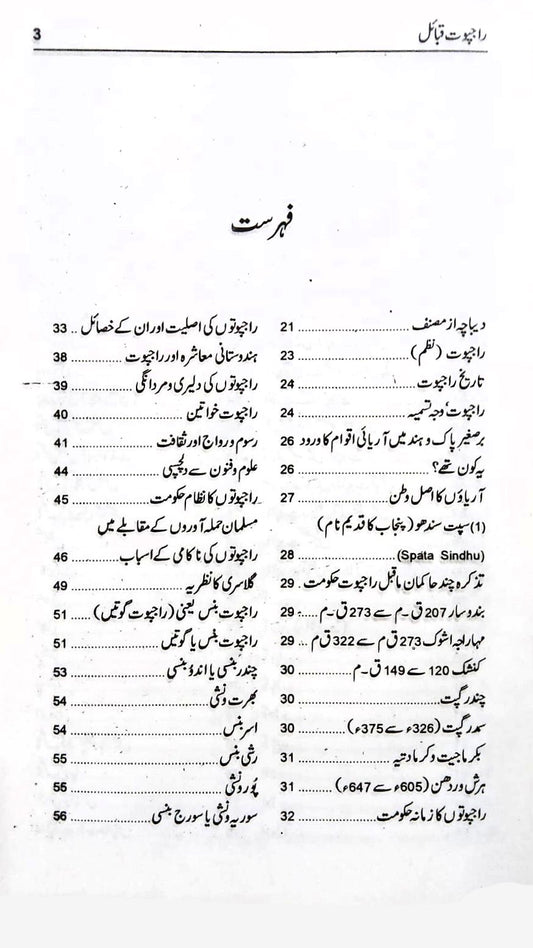 راجپوت قبائل
3
فہرست
دیباچہ از مصنف ........................ 21
راجپوت (نظم) ........................ 23
تاریخ راجپوت ........................ 24
راجپوت' وجہ تسمیہ ........................ 24
برصغیر پاک و ہند میں آریائی اقوام کا ورود 26
یہ کون تھے؟ ........................ 26
آریاؤں کا اصل وطن ........................ 27
(1) سپت سندھو (پنجاب کا قدیم نام)
(Spata Sindhu) ........................ 28
تذکرہ چند حاکمان ماقبل راجپوت حکومت . 29
بندوسار 207 ق-م سے 273 ق-م ..... 29
مہاراجہ اشوک 273 ق م سے 322 ق م ... 29
کنشک 120 سے 149 ق-م ................. 30
چندر گپت ........................ 30
سمدر گپت (326ء سے 375ء) ........... 30
بکرماجیت وکرمادتیہ ................. 31
ہرش وردھن (605ء سے 647ء) ......... 31
راجپوتوں کا زمانہ حکومت ................. 32
راجپوتوں کی اصلیت اور ان کے خصائل .. 33
ہندوستانی معاشرہ اور راجپوت .............. 38
راجپوتوں کی دلیری و مردانگی .............. 39
راجپوت خواتین ........................ 40
رسوم و رواج اور ثقافت .................. 41
علوم و فنون سے دلچسپی .................. 44
راجپوتوں کا نظام حکومت .................. 45
مسلمان حملہ آوروں کے مقابلے میں
راجپوتوں کی ناکامی کے اسباب ............ 46
گلاسری کا نظریہ ........................ 49
راجپوت بنس یعنی (راجپوت گوتیں) ...... 51
راجپوت بنس یا گوتیں .................. 51
چندر بنسی یا اندو بنسی .................. 53
بھرت ونشی ........................ 54
اسر بنس ........................ 54
رشی بنس ........................ 55
پُورو ونشی ........................ 56
سوریہ ونشی یا سورج بنسی .................. 56